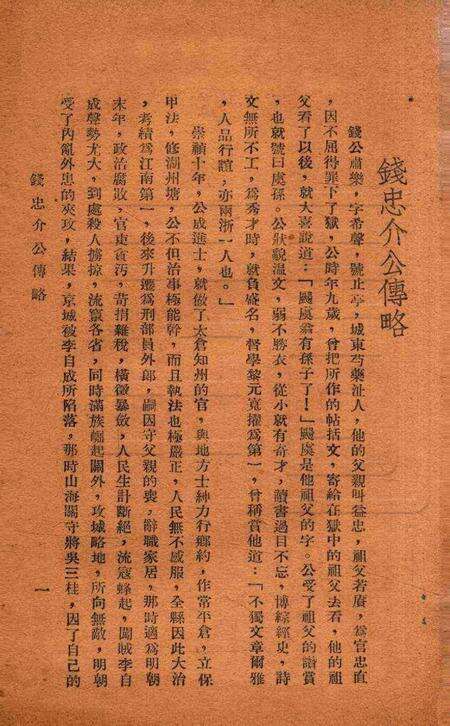 錢忠介公傳略
錢公肅樂，字希聲，號止亭，城東芍藥沚人，他的父親叫益忠，祖父若賡，爲官忠直
，因不屈得罪下了獄，公時年九歲，曾把所作的帖括文，寄給在獄中的祖父去看，他的祖
父看了以後，就大喜說道：「颺虞翁有孫子了！」颺虞是他祖父的字。公受了祖父的讚賞
，也就號曰虞孫。公狀貌溫文，弱不勝衣，從小就有奇才，讀書過目不忘，博綜經史，詩
文無所不工，爲秀才時，就負盛名，督學黎元寬擢爲第一，曾稱賞他道：「不獨文章爾雅
，人品行誼，亦兩浙一人也。」
崇禎十年，公成進士，就做了太倉知州的官，與地方士紳力行鄉約，作常平倉，立保
甲法，修湖州塘。公不但治事極能幹，而且執法也極嚴正，人民無不感服，全縣因此大治
，考績爲江南第一，後來升遷爲刑部員外郎，嗣因守父親的喪，辭職家居，那時適爲明朝
末年，政治腐敗，官吏貪污，苛捐雜稅，橫徵暴斂，人民生計斷絕，流寇蜂起，闖賊李自
成聲勢尤大，到處殺人擄掠，流竄各省，同時滿族崛起關外，攻城略地，所向無敵，明朝
受了內亂外患的夾攻，結果，京城被李自成所陷落，那時山海關守將吳三桂，因了自己的
錢忠介公傳略
一